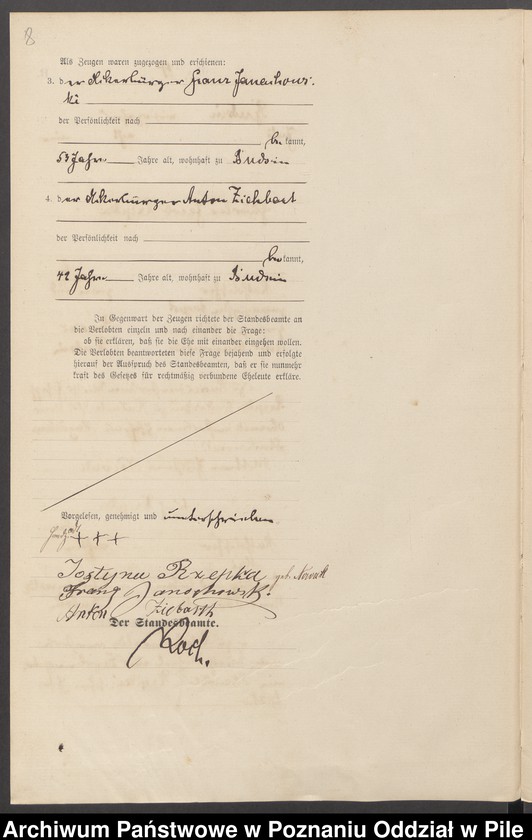 8
Als Zeugen waren zugezogen und erschienen:
3. der Ackerbürger Franz Janochows-
ki
der Persönlichkeit nach
be kannt,
53 Jahre Jahre alt, wohnhaft zu Budsin
4. der Ackerbürger Anton Ziehbart
der Persönlichkeit nach
be kannt,
42 Jahre Jahre alt, wohnhaft zu Budsin
In Gegenwart der Zeugen richtete der Standesbeamte an
die Verlobten einzeln und nach einander die Frage:
ob sie erklären, daß sie die Ehe mit einander eingehen wollen.
Die Verlobten beantworteten diese Frage bejahend und erfolgte
hierauf der Ausspruch des Standesbeamten, daß er sie nunmehr
kraft des Gesetzes für rechtmäßig verbundene Eheleute erkläre.
Vorgelesen, genehmigt und unterschrieben
+ + +
Jostyna Rzepka geb. Nowak
Franz Janochowski
Anton Ziebarth
Der Standesbeamte.
Koch.
Archiwum Państwowe w Poznaniu Oddział w Pile